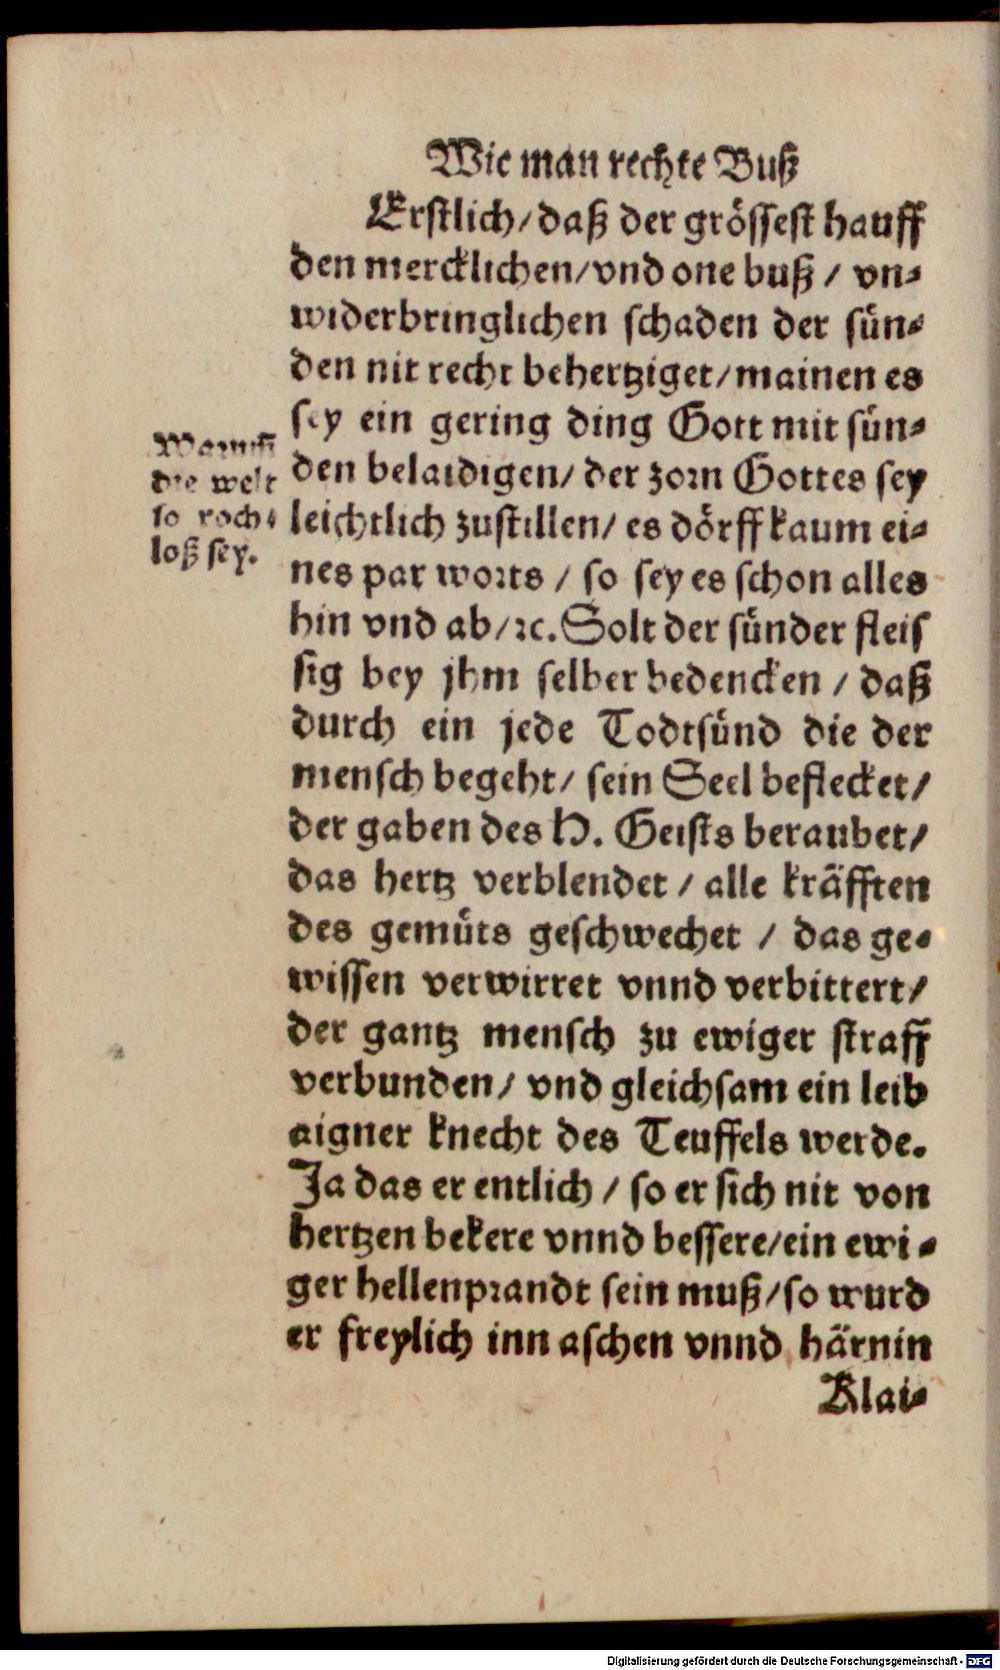 Wie man rechte Buß
Erstlich/ daß der grössest hauff
den mercklichen/ vnd one buß / vn⸗
widerbringlichen schaden der sün⸗
den nit recht behertziget/ mainen es
sey ein gering ding Gott mit sün⸗
den belaidigen/ der zorn Gottes sey
leichtlich zustillen/ es dörff kaum ei⸗
nes par worts / so sey es schon alles
hin vnd ab/ ꝛc. Solt der sünder fleis
sig bey jhm selber bedencken / daß
durch ein jede Todtsünd die der
mensch begeht/ sein Seel beflecket/
der gaben des H. Geists beraubet/
das hertz verblendet / alle kräfften
des gemüts geschwechet / das ge⸗
wissen verwirret vnnd verbittert/
der gantz mensch zu ewiger straff
verbunden/ vnd gleichsam ein leib
aigner knecht des Teuffels werde.
Ja das er entlich / so er sich nit von
hertzen bekere vnnd bessere/ ein ewi⸗
ger hellenprandt sein muß/ so wurd
er freylich inn aschen vnnd härnin
Klai⸗
Warumb
die welt
so roch⸗
loß sey.
Digitalisierung gefördert durch die Deutsche Forschungsgemeinschaft - DFG